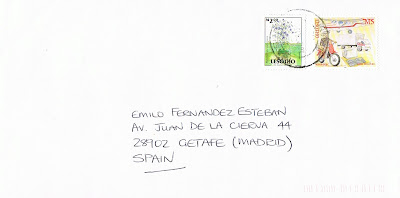 LESOTHO
M5
EMILIO FERNANDEZ ESTEBAN
AV. JUAN DE LA CIERVA 44
28902 GETAFE (MADRID)
SPAIN